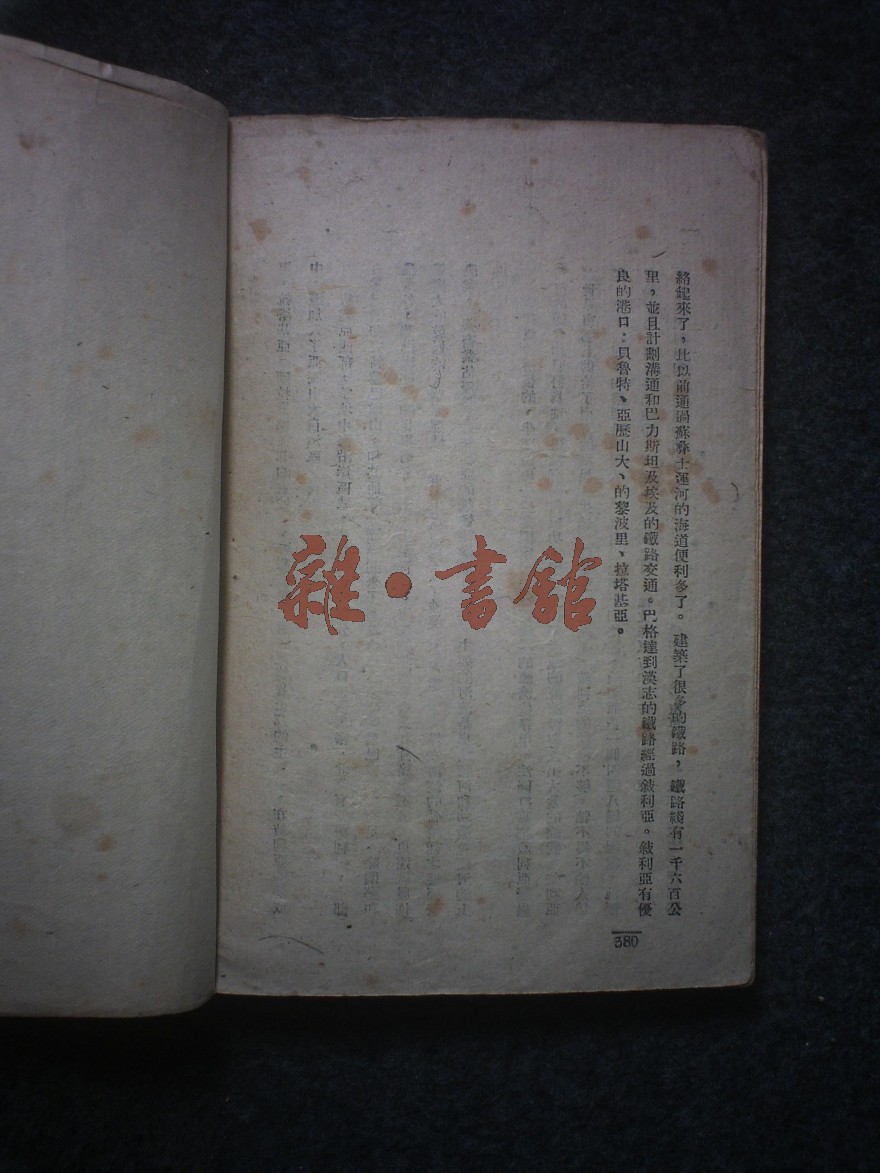 絡起來了，比以前通過蘇彝士運河的海道便利多了。建築了很多的鐵路，鐵路綫有一千六百公
里，並且計劃溝通和巴力斯坦及埃及的鐵路交通。巴格達到漢志的鐵路經過敍利亞。敍利亞有優
良的港口：貝魯特、亞歷山大、的黎波里、拉塔基亞。
380
雜·書館